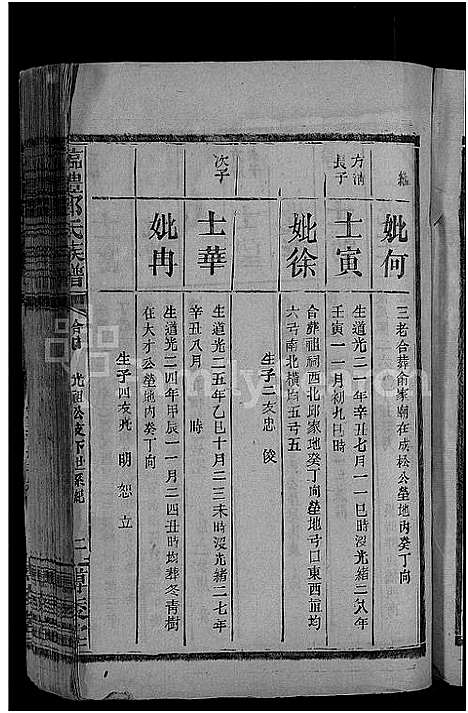 妣何
三老合葬俞家廟在成松公塋地內癸丁向
方洲
長子
士寅
生道光二一年辛丑七月一一巳時沒光緒二八年
壬寅一一月初九巳時
妣徐
合葬祖祠西北邱家地癸丁向塋地弓口東西直均
六弓南北橫均五弓五
生子二友忠 俊
次子
士華
生道光二五年乙巳十月二三未時沒光緒二七年
辛丑八月 時
妣冉
生道光二四年甲辰一一月二四丑時均葬冬青樹
在大才公塋地內癸丁向
生子四友光 明 恕 立
氏族譜
光祖公支下世系紀